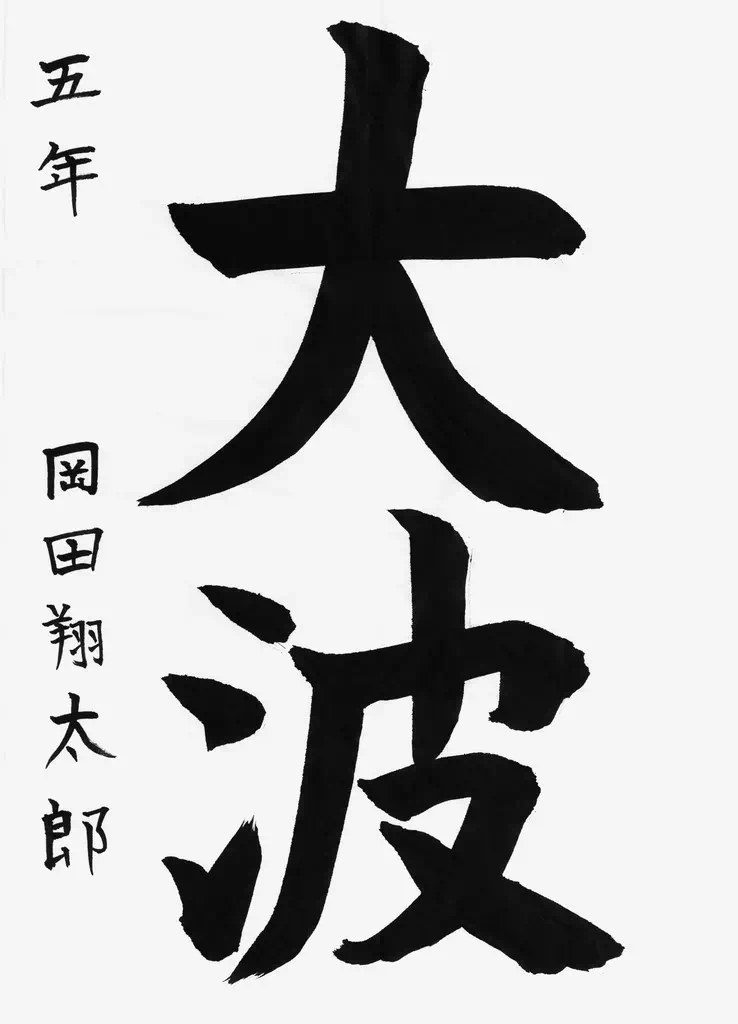 大波
五年 岡田翔太郎